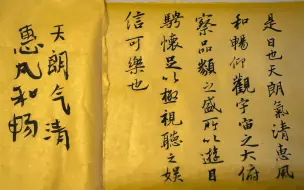 是日也天朗氣清惠風
和暢仰觀宇宙之大俯
察品類之盛所以遊目
騁懷足以極視聽之娛
信可樂也
天朗气清
惠风和畅